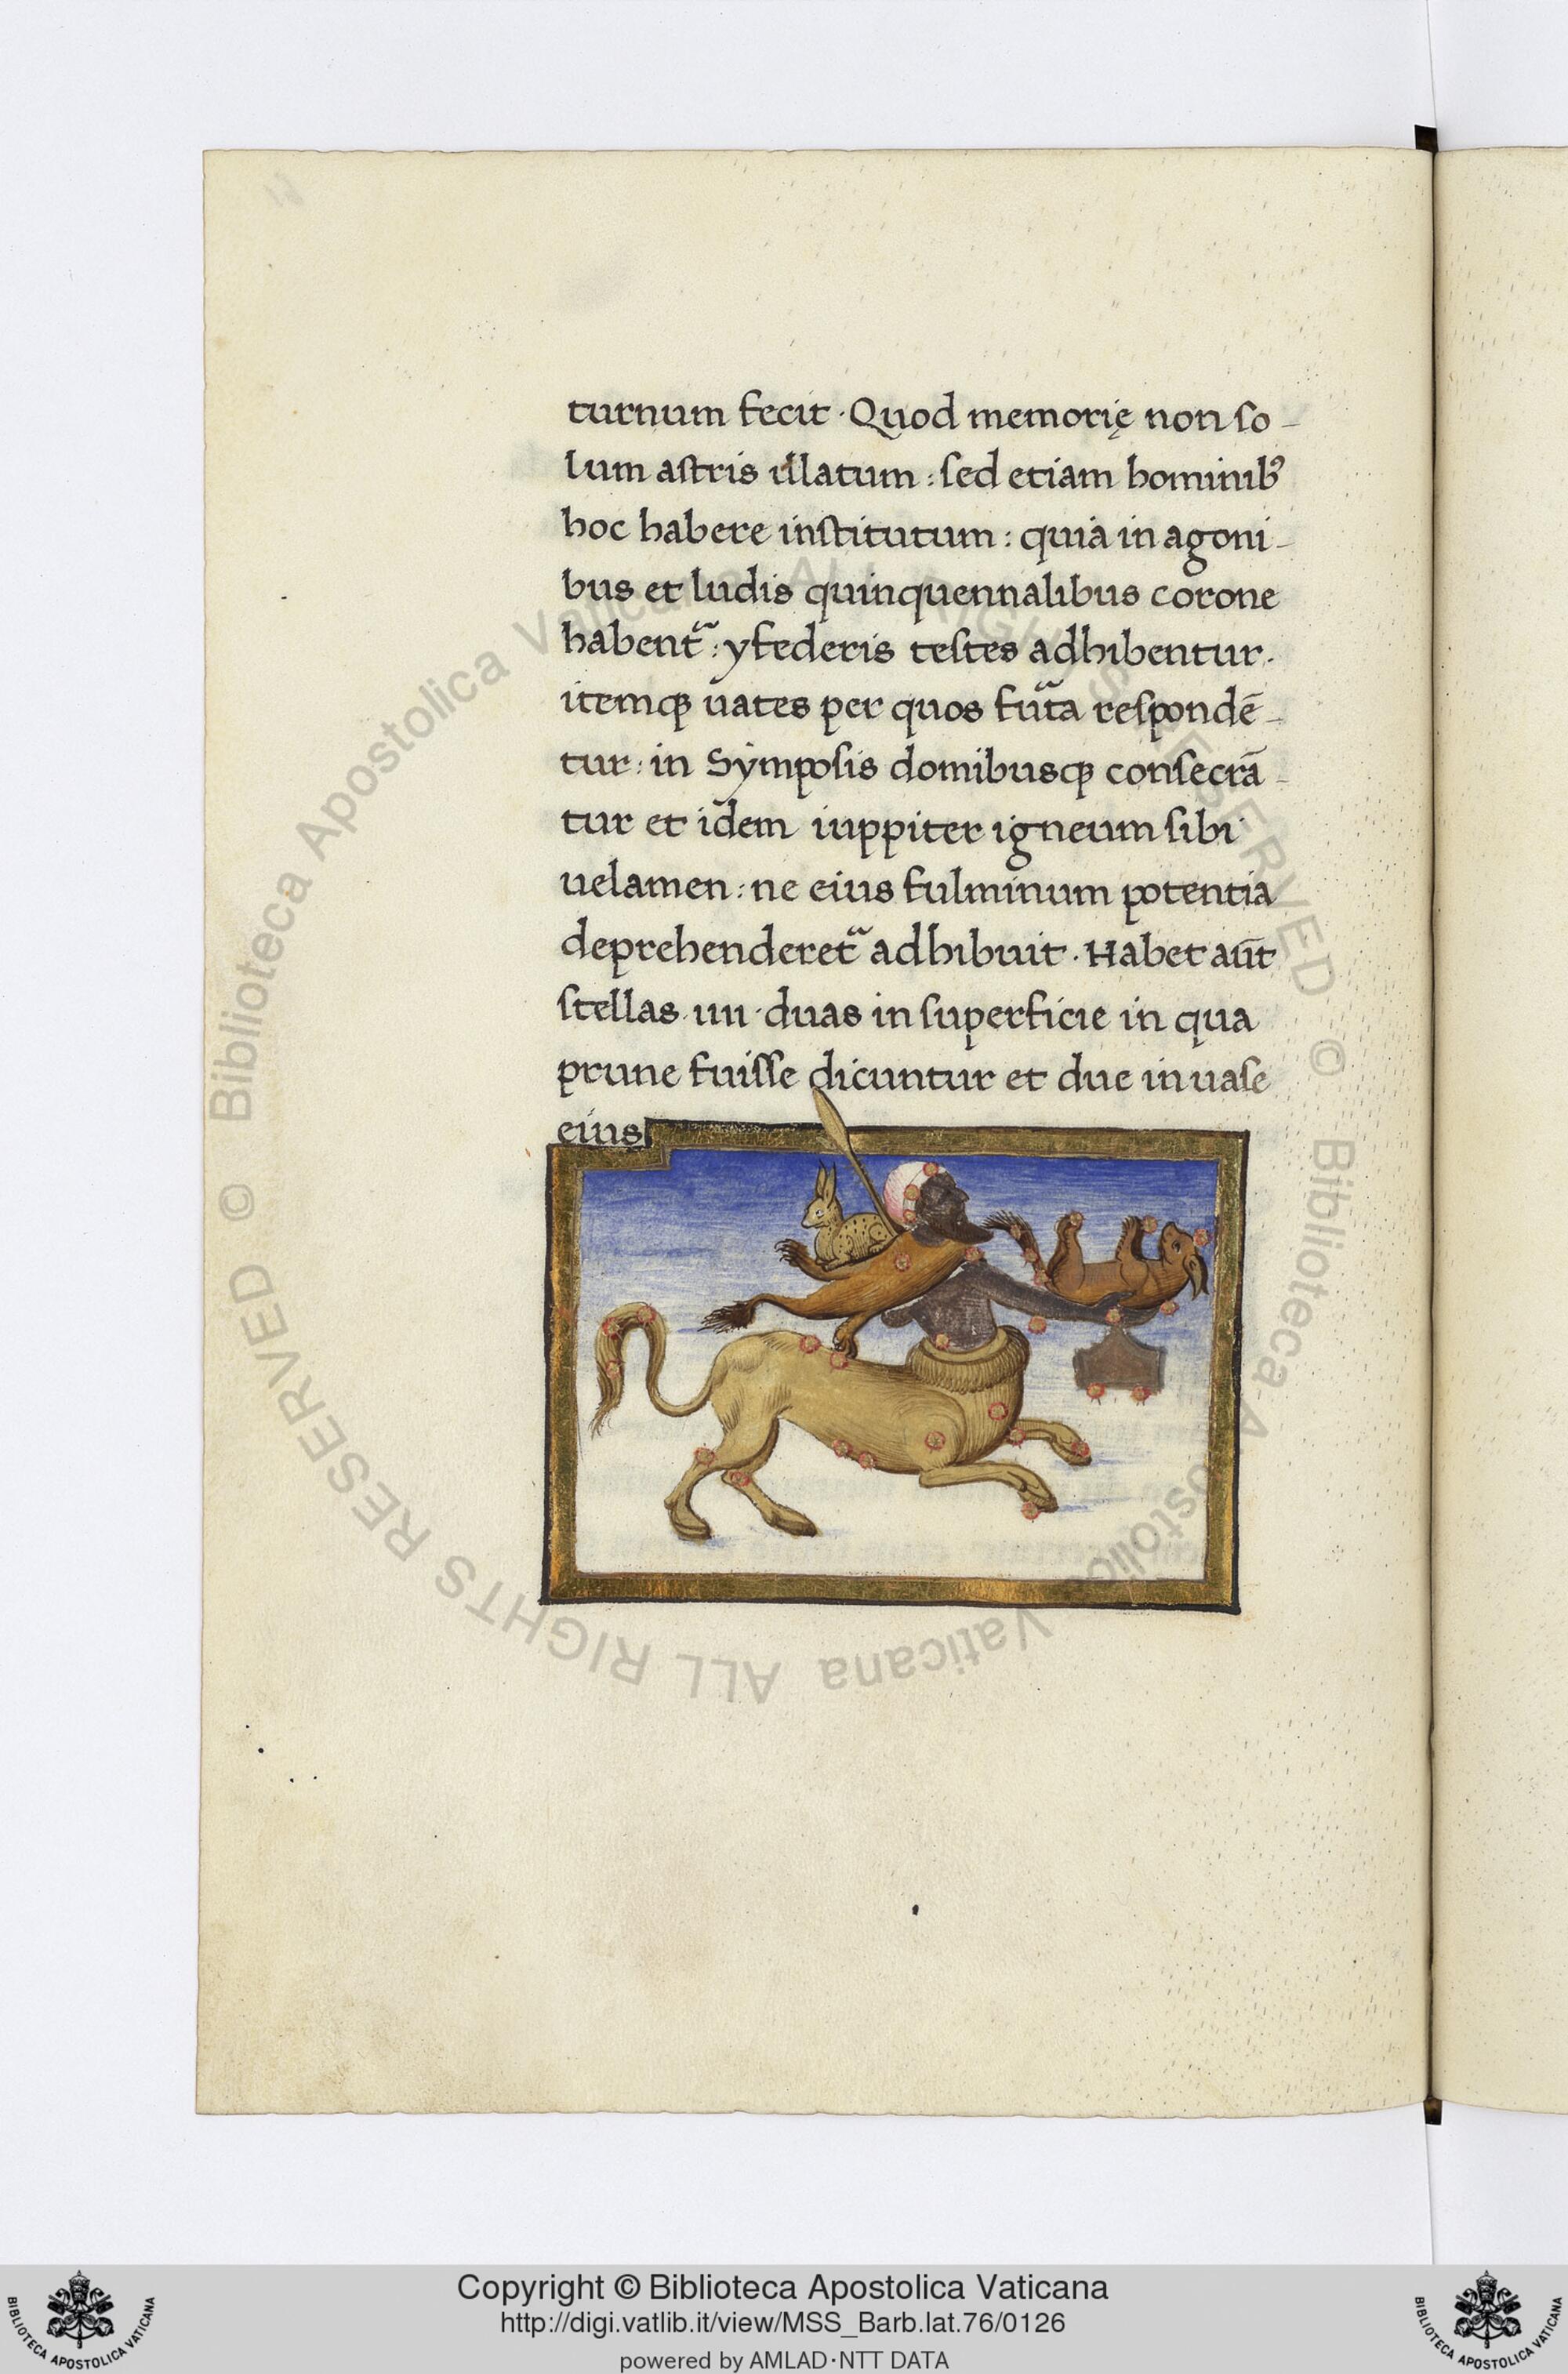 turnum fecit · Quod memorię non ſo-
lum aſtris illatum : ſed etiam hominibꝰ
hoc habere inſtitutum : quia in agoni-
bus et ludis quinquennalibus corone
habent᷑ : yfederis teſtes adhibentur.
itemqꝫ uates per quos fut᷑a reſpondē-
tur : in Symposis domibusqꝫ conſecrā-
tur et idem iuppiter igneum ſibi
uelamen : ne eius fulminum potentia
deprehenderet᷑ adhibuit · Habet aūt
ſtellas · iiii · duas in ſuperficie in qua
prune fuiſſe dicuntur et due in uaſe
eius
© Biblioteca Apostolica Vaticana ALL RIGHTS RESERVED © Biblioteca Apostolica Vaticana ALL RIGHTS RESERVED
Copyright © Biblioteca Apostolica Vaticana
http://digi.vatlib.it/view/MSS_Barb.lat.76/0126
powered by AMLAD·NTT DATA
BIBLIOTECA APOSTOLICA VATICANA
BIBLIOTECA APOSTOLICA VATICANA